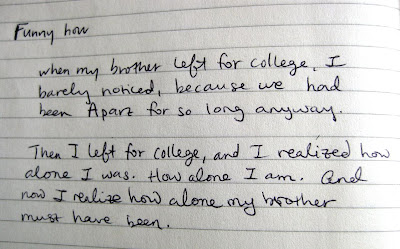 Funny how
when my brother left for college, I
barely noticed, because we had
been Apart for so long anyway.
Then I left for college, and I realized how
alone I was. How alone I am. And
now I realize how alone my brother
must have been.